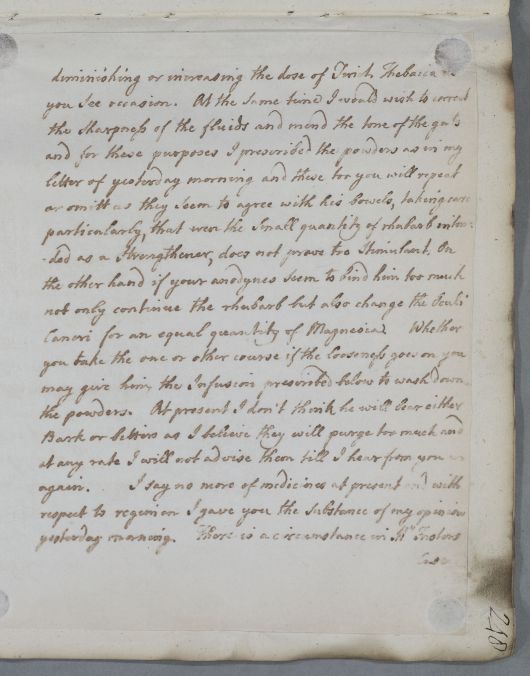 diminishing or increasing the dose of Tinct. Thebaica as
you See occasion. At the Same time I would wish to correct
the Sharpness of the fluids and mend the tone of the guts
and for these purposes I prescribed the powders as in my
letter of yesterday morning and these too you will repeat
or omitt as they Seem to agree with his bowels, taking care
particularly, that even the Small quantity of rhubarb inten-
-ded as a Strengthener, does not prove too Stimulant. On
the other hand if your anodynes Seem to bind him too much
not only continue the rhubarb but also change the Oculi
Cancri for an equal quantity of Magnesia. Whether
you take the one or other course if the looseness goes on you
may give him, the Infusion prescribed below to wash down
the powders. At present I don't think he will bear either
Bark or bitters as I believe they will purge too much and
at any rate I will not advise them till I hear from you
again. I say no more of medicines at present and with
respect to regimen I gave you the Substance of my opinion
yesterday morning. There is a circumstance in Mr.
Case
248